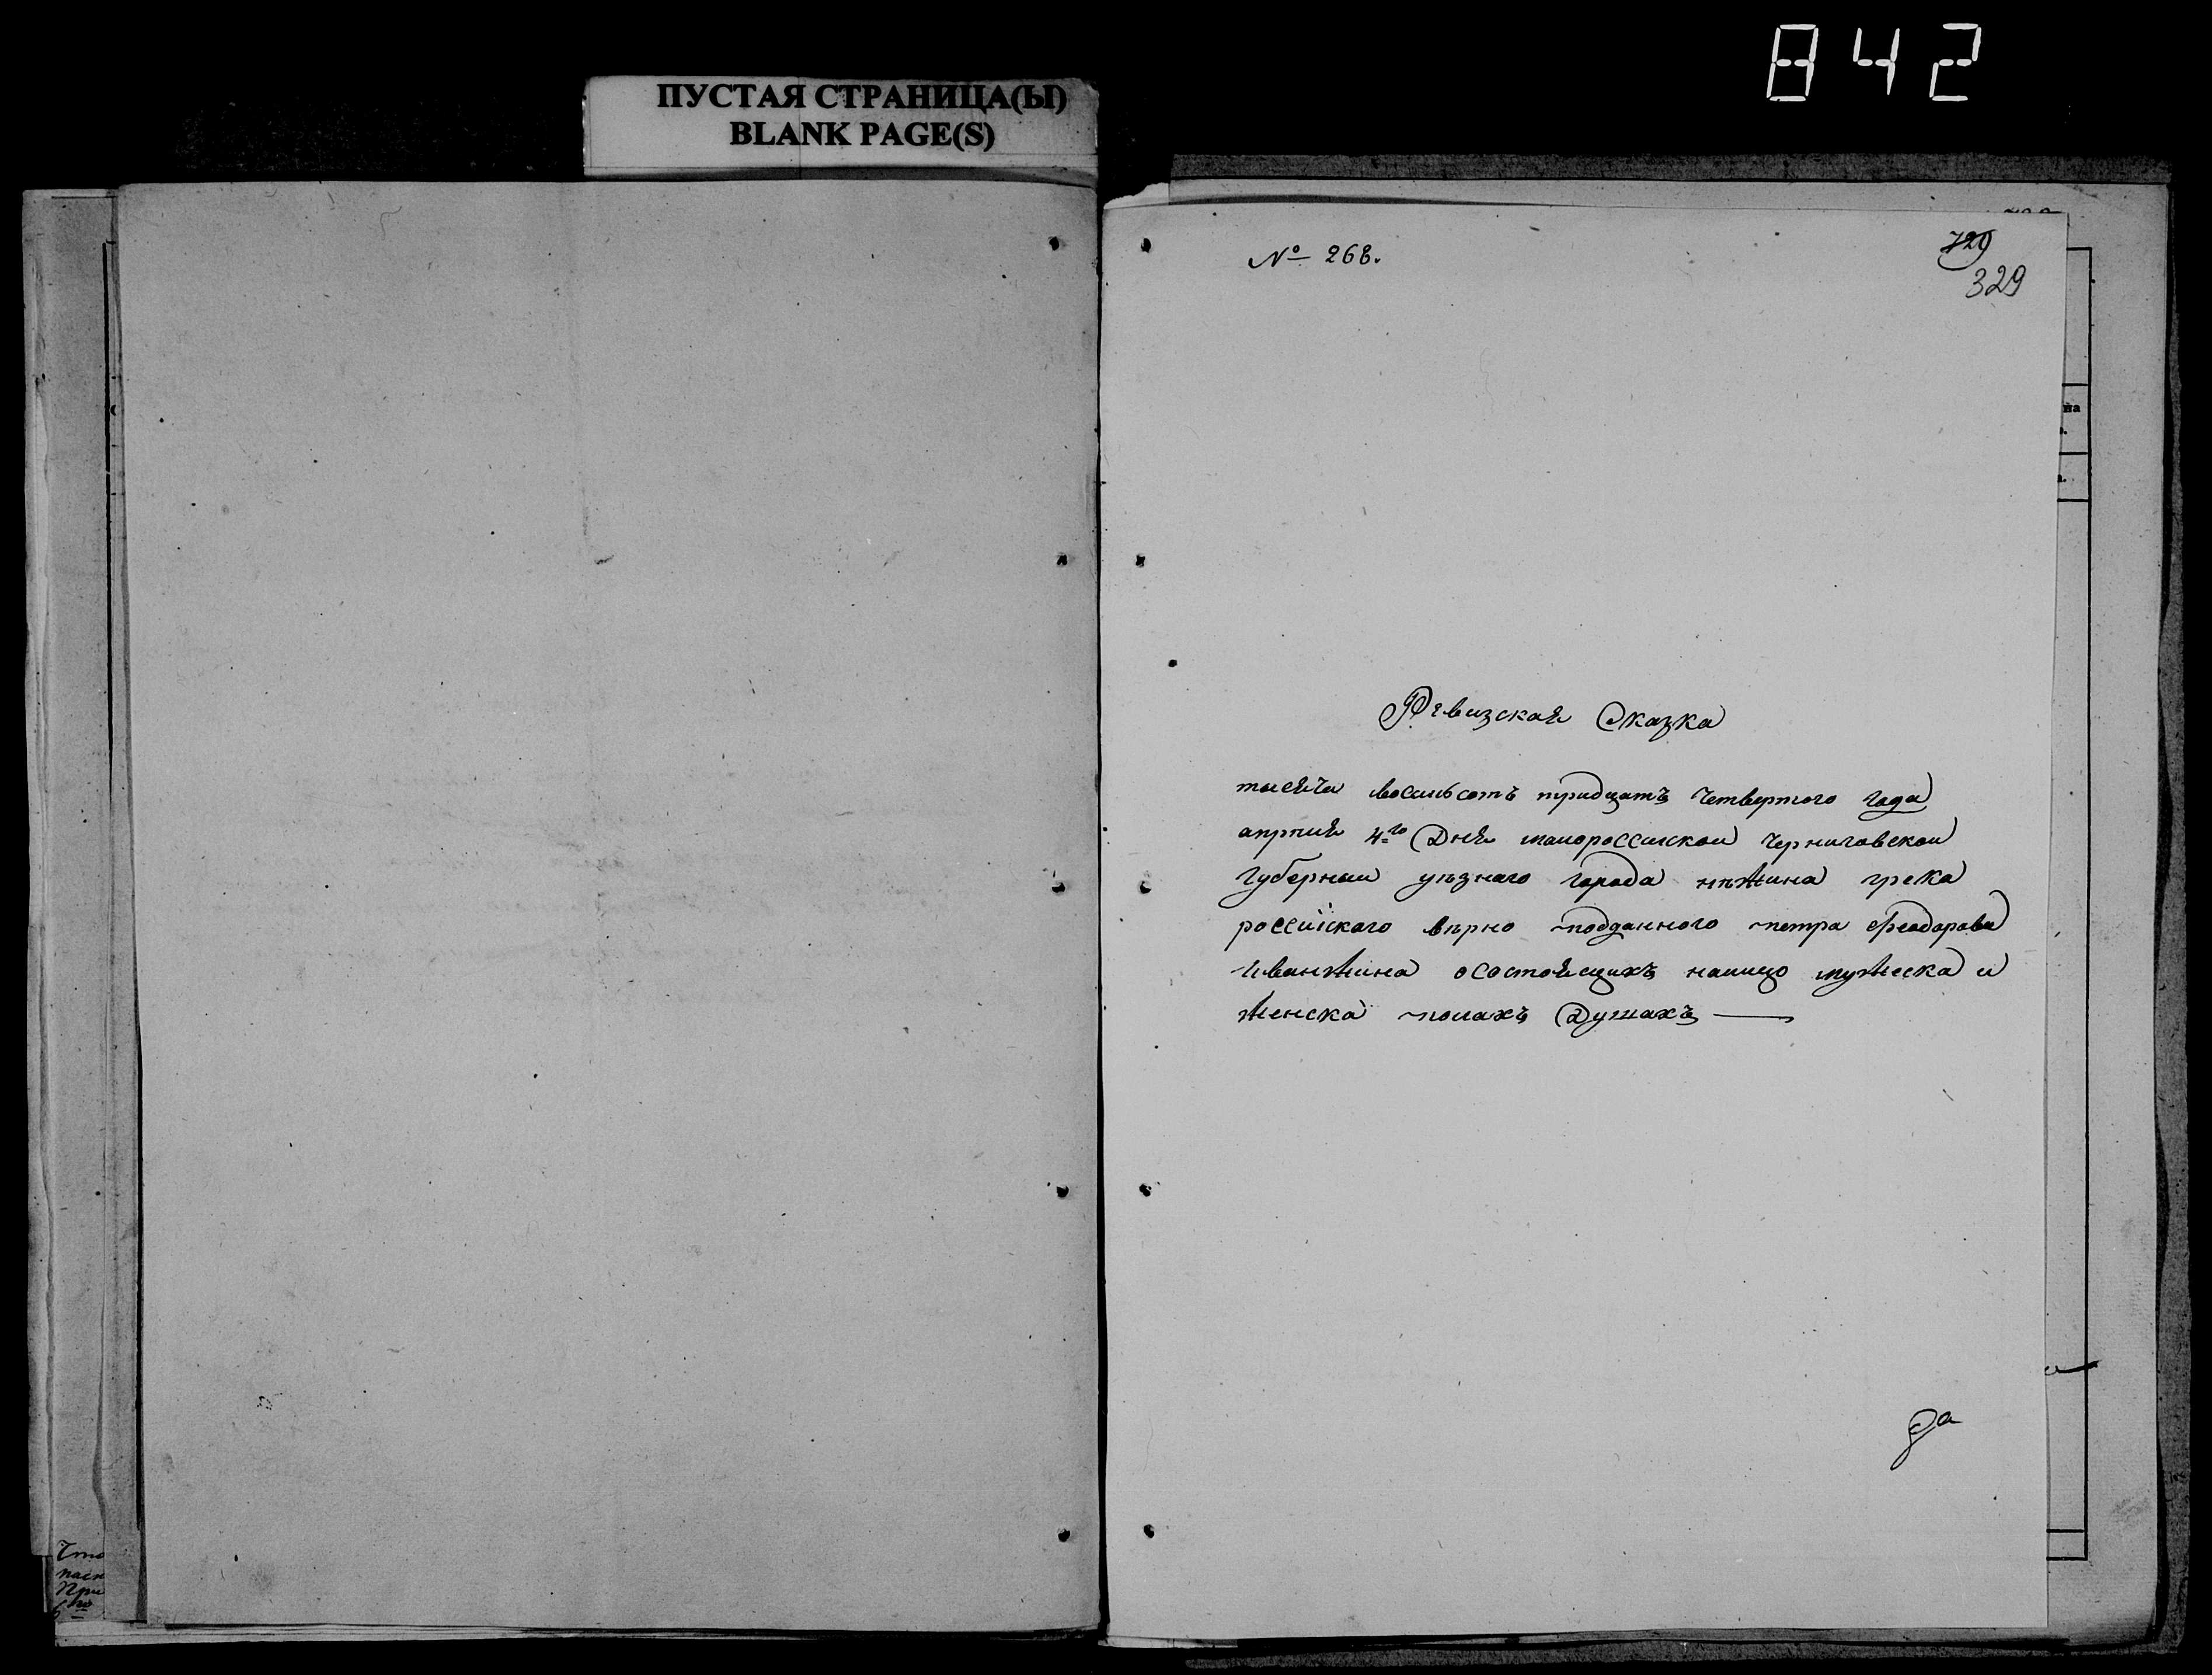 842
ПУСТАЯ СТРАНИЦА(Ы)
BLANK PAGE(S)
№ 268.
729
329
Ревизская Сказка
тысяча восимьсотъ тридцатъ четвертого года
апреля 4го Дня малороссииской черниговской
губернии уезного города нежина грека
россииского верно подданного петра Феодорова
иванжина осостоящихъ налицо мужеска и
женска полахъ Душахъ —